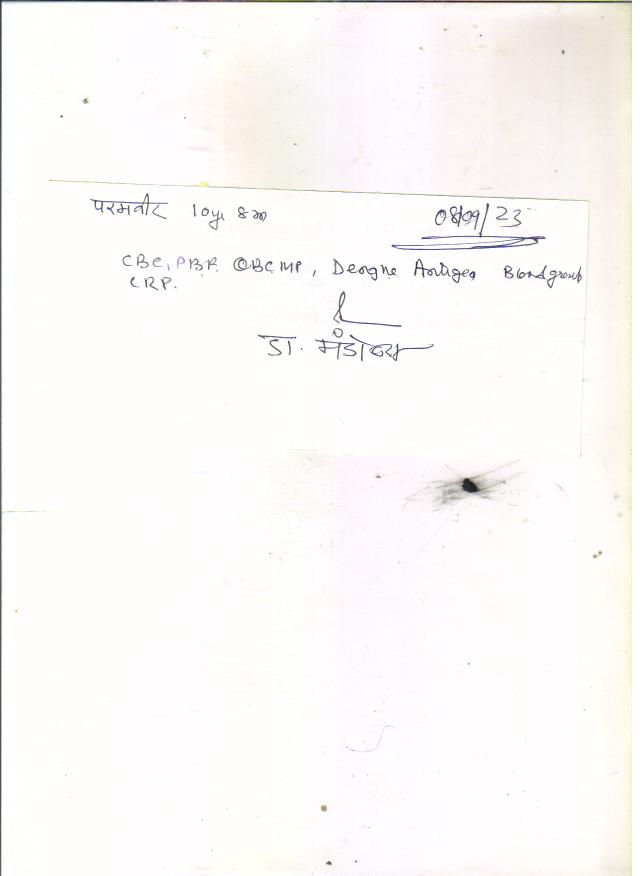 परमवीर 10yr 8m 08/09/23
CBC, PBF. QBCMP, Dengue Antigen Bloodgroup
CRP.
डा. मंडोवरा